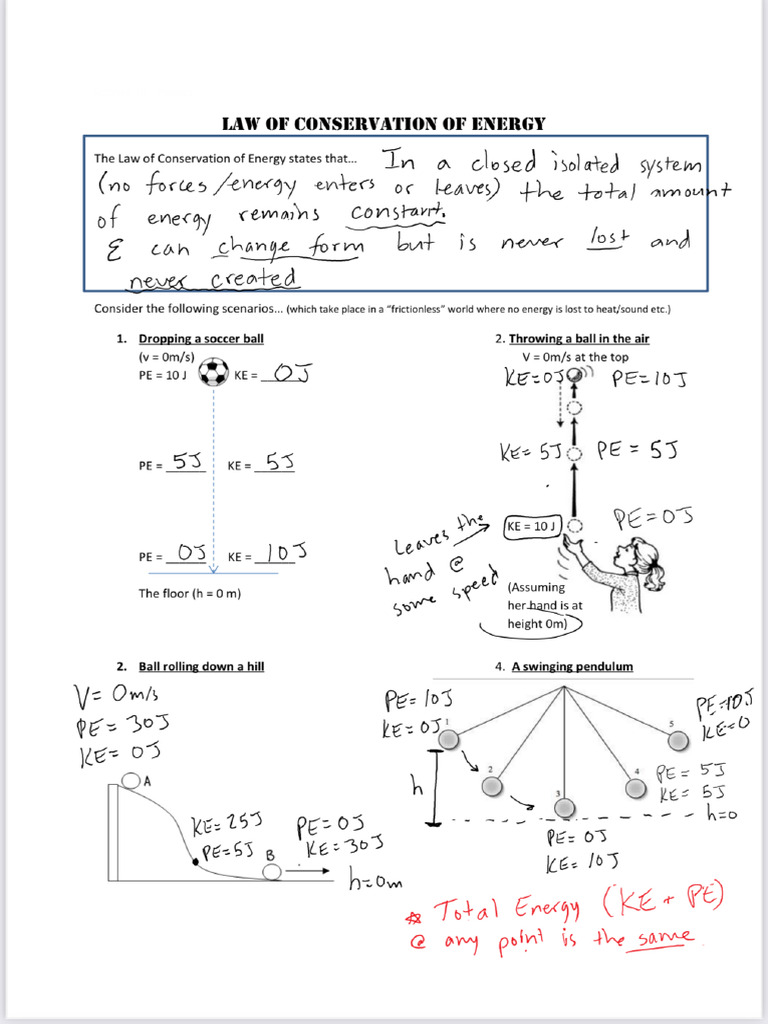 LAW OF CONSERVATION OF ENERGY
The Law of Conservation of Energy states that... In a closed isolated system
(no forces/energy enters or leaves) the total amount
of energy remains constant.
E can change form but is never lost and
never created
Consider the following scenarios... (which take place in a "frictionless" world where no energy is lost to heat/sound etc.)
1. Dropping a soccer ball
(v = 0m/s)
PE = 10 J KE = 0J
PE = 5J KE = 5J
PE = 0J KE = 10J
The floor (h = 0 m)
2. Throwing a ball in the air
V = 0m/s at the top
KE=0J PE=10J
KE= 5J PE = 5J
KE = 10 J PE=0J
Leaves the
hand @
some speed
(Assuming
her hand is at
height 0m)
2. Ball rolling down a hill
V= 0m/s
PE= 30J
KE= 0J
A
KE= 25J
PE=5J
B
PE=0J
KE=30J
h=0m
4. A swinging pendulum
PE= 10J
KE= 0J
1
2
3
4
5
PE=10J
KE=0
PE= 5J
KE= 5J
h
h=0
PE= 0J
KE= 10J
* Total Energy (KE + PE)
@ any point is the same